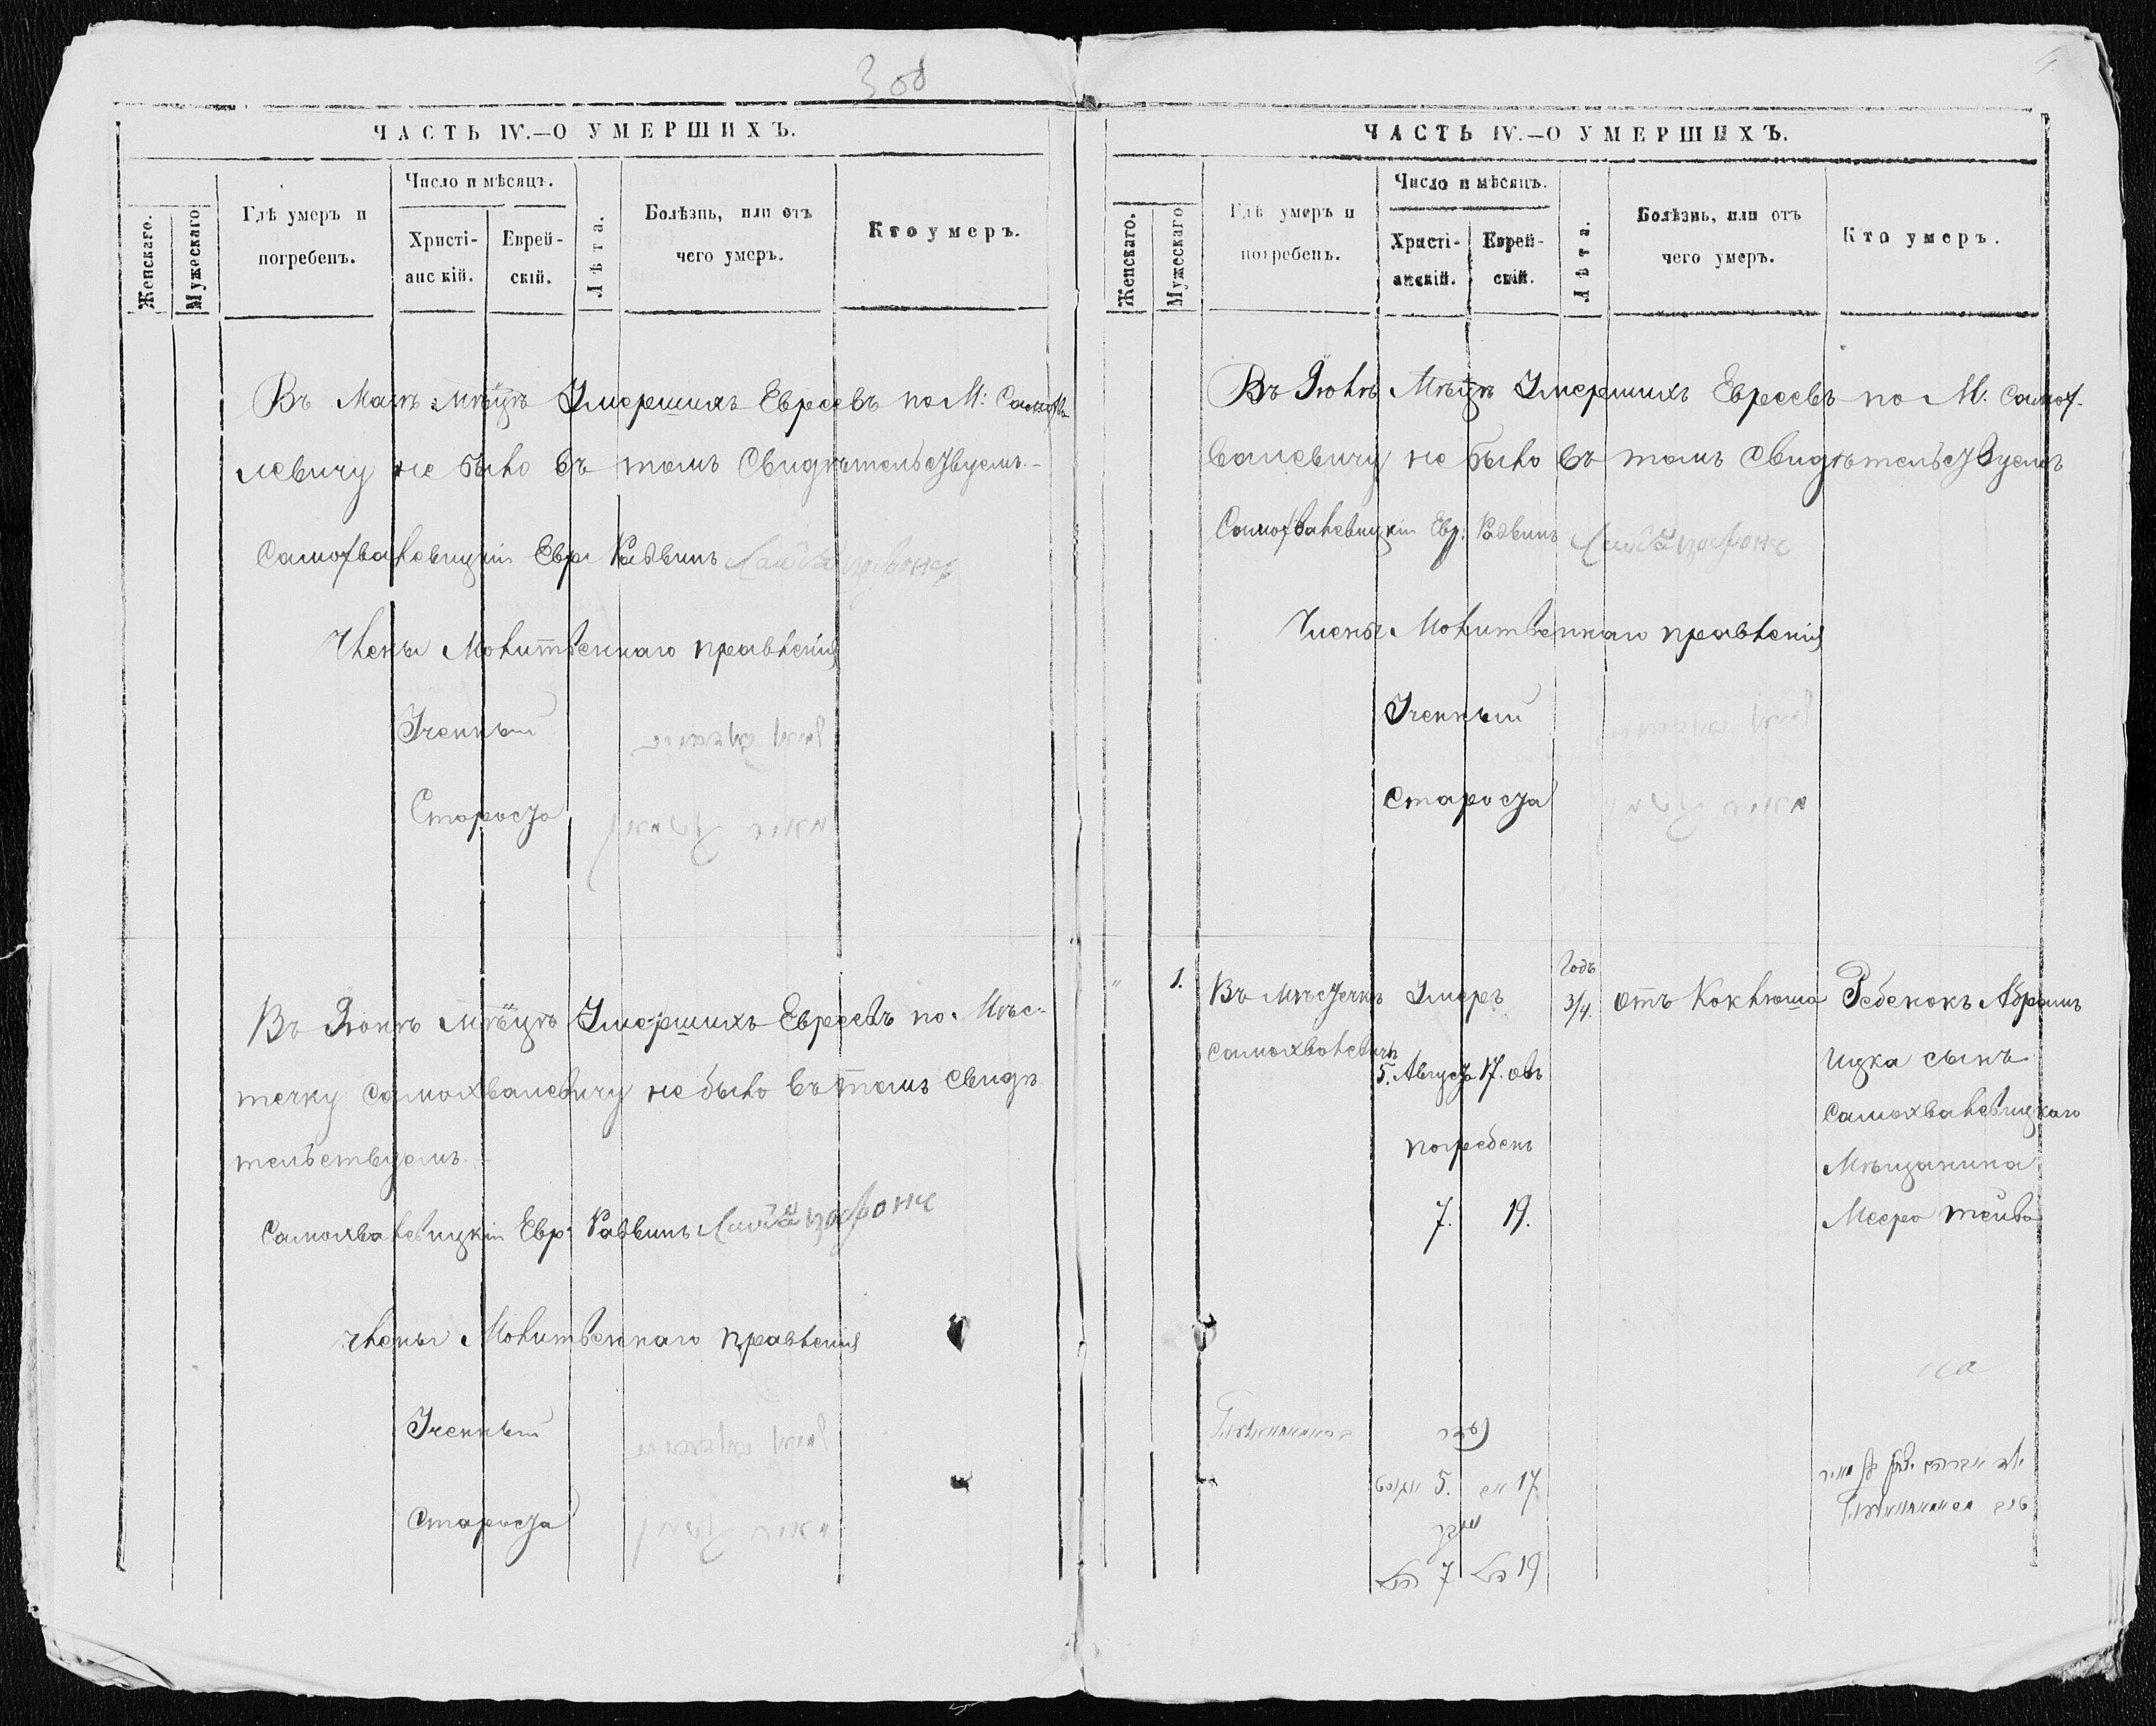 308
ЧАСТЬ IV.—О УМЕРШИХЪ.
Женскаго.
Мужескаго
Гдѣ умеръ и
погребенъ.
Число и мѣсяцъ.
Христі-
анскій.
Еврей-
скій.
Лѣта.
Болѣзнь, или отъ
чего умеръ.
Кто умеръ.
Въ Маѣ Мѣцѣ Умершихъ Евреевъ по М: Самохва
левичу не было въ томъ Свидѣтельствуемъ.-
Самохвалевицкій Евр: Раввинъ
Члены Молитвеннаго правленія
Ученый
Староста
Въ Іюнѣ Мѣцѣ Умершихъ Евреевъ по Мѣс-
течку Самохваловичу не было въ томъ свидѣ
тельствуемъ.-
Самохвалевицкій Евр: Раввинъ
Члены Молитвеннаго правленія
Ученый
Староста
ЧАСТЬ IV.—О УМЕРШИХЪ.
Женскаго.
Мужескаго
Гдѣ умеръ и
погребенъ.
Число и мѣсяцъ.
Христі-
анскій.
Еврей-
скій.
Лѣта.
Болѣзнь, или отъ
чего умеръ.
Кто умеръ.
Въ Іюлѣ Мѣцѣ Умершихъ Евреевъ по М. Самох-
валевичу не было въ томъ свидѣтельствуемъ
Самохвалевицкій Евр: Раввинъ
Члены Молитвеннаго правленія
Ученый
Староста
" 1. Въ мѣстечкѣ Умеръ Годъ 3/4. отъ Коклюша Ребенокъ Абрамъ
Самохвалевичѣ 5. Августъ 17. овъ Ицка сынъ
Самохвалевицкаго
погребенъ Мѣщанина
7. 19. Меера
נפטר
אווגוסט 5. אב 17
ילד אברהם יצחק בן מאיר
נקבר
7 19